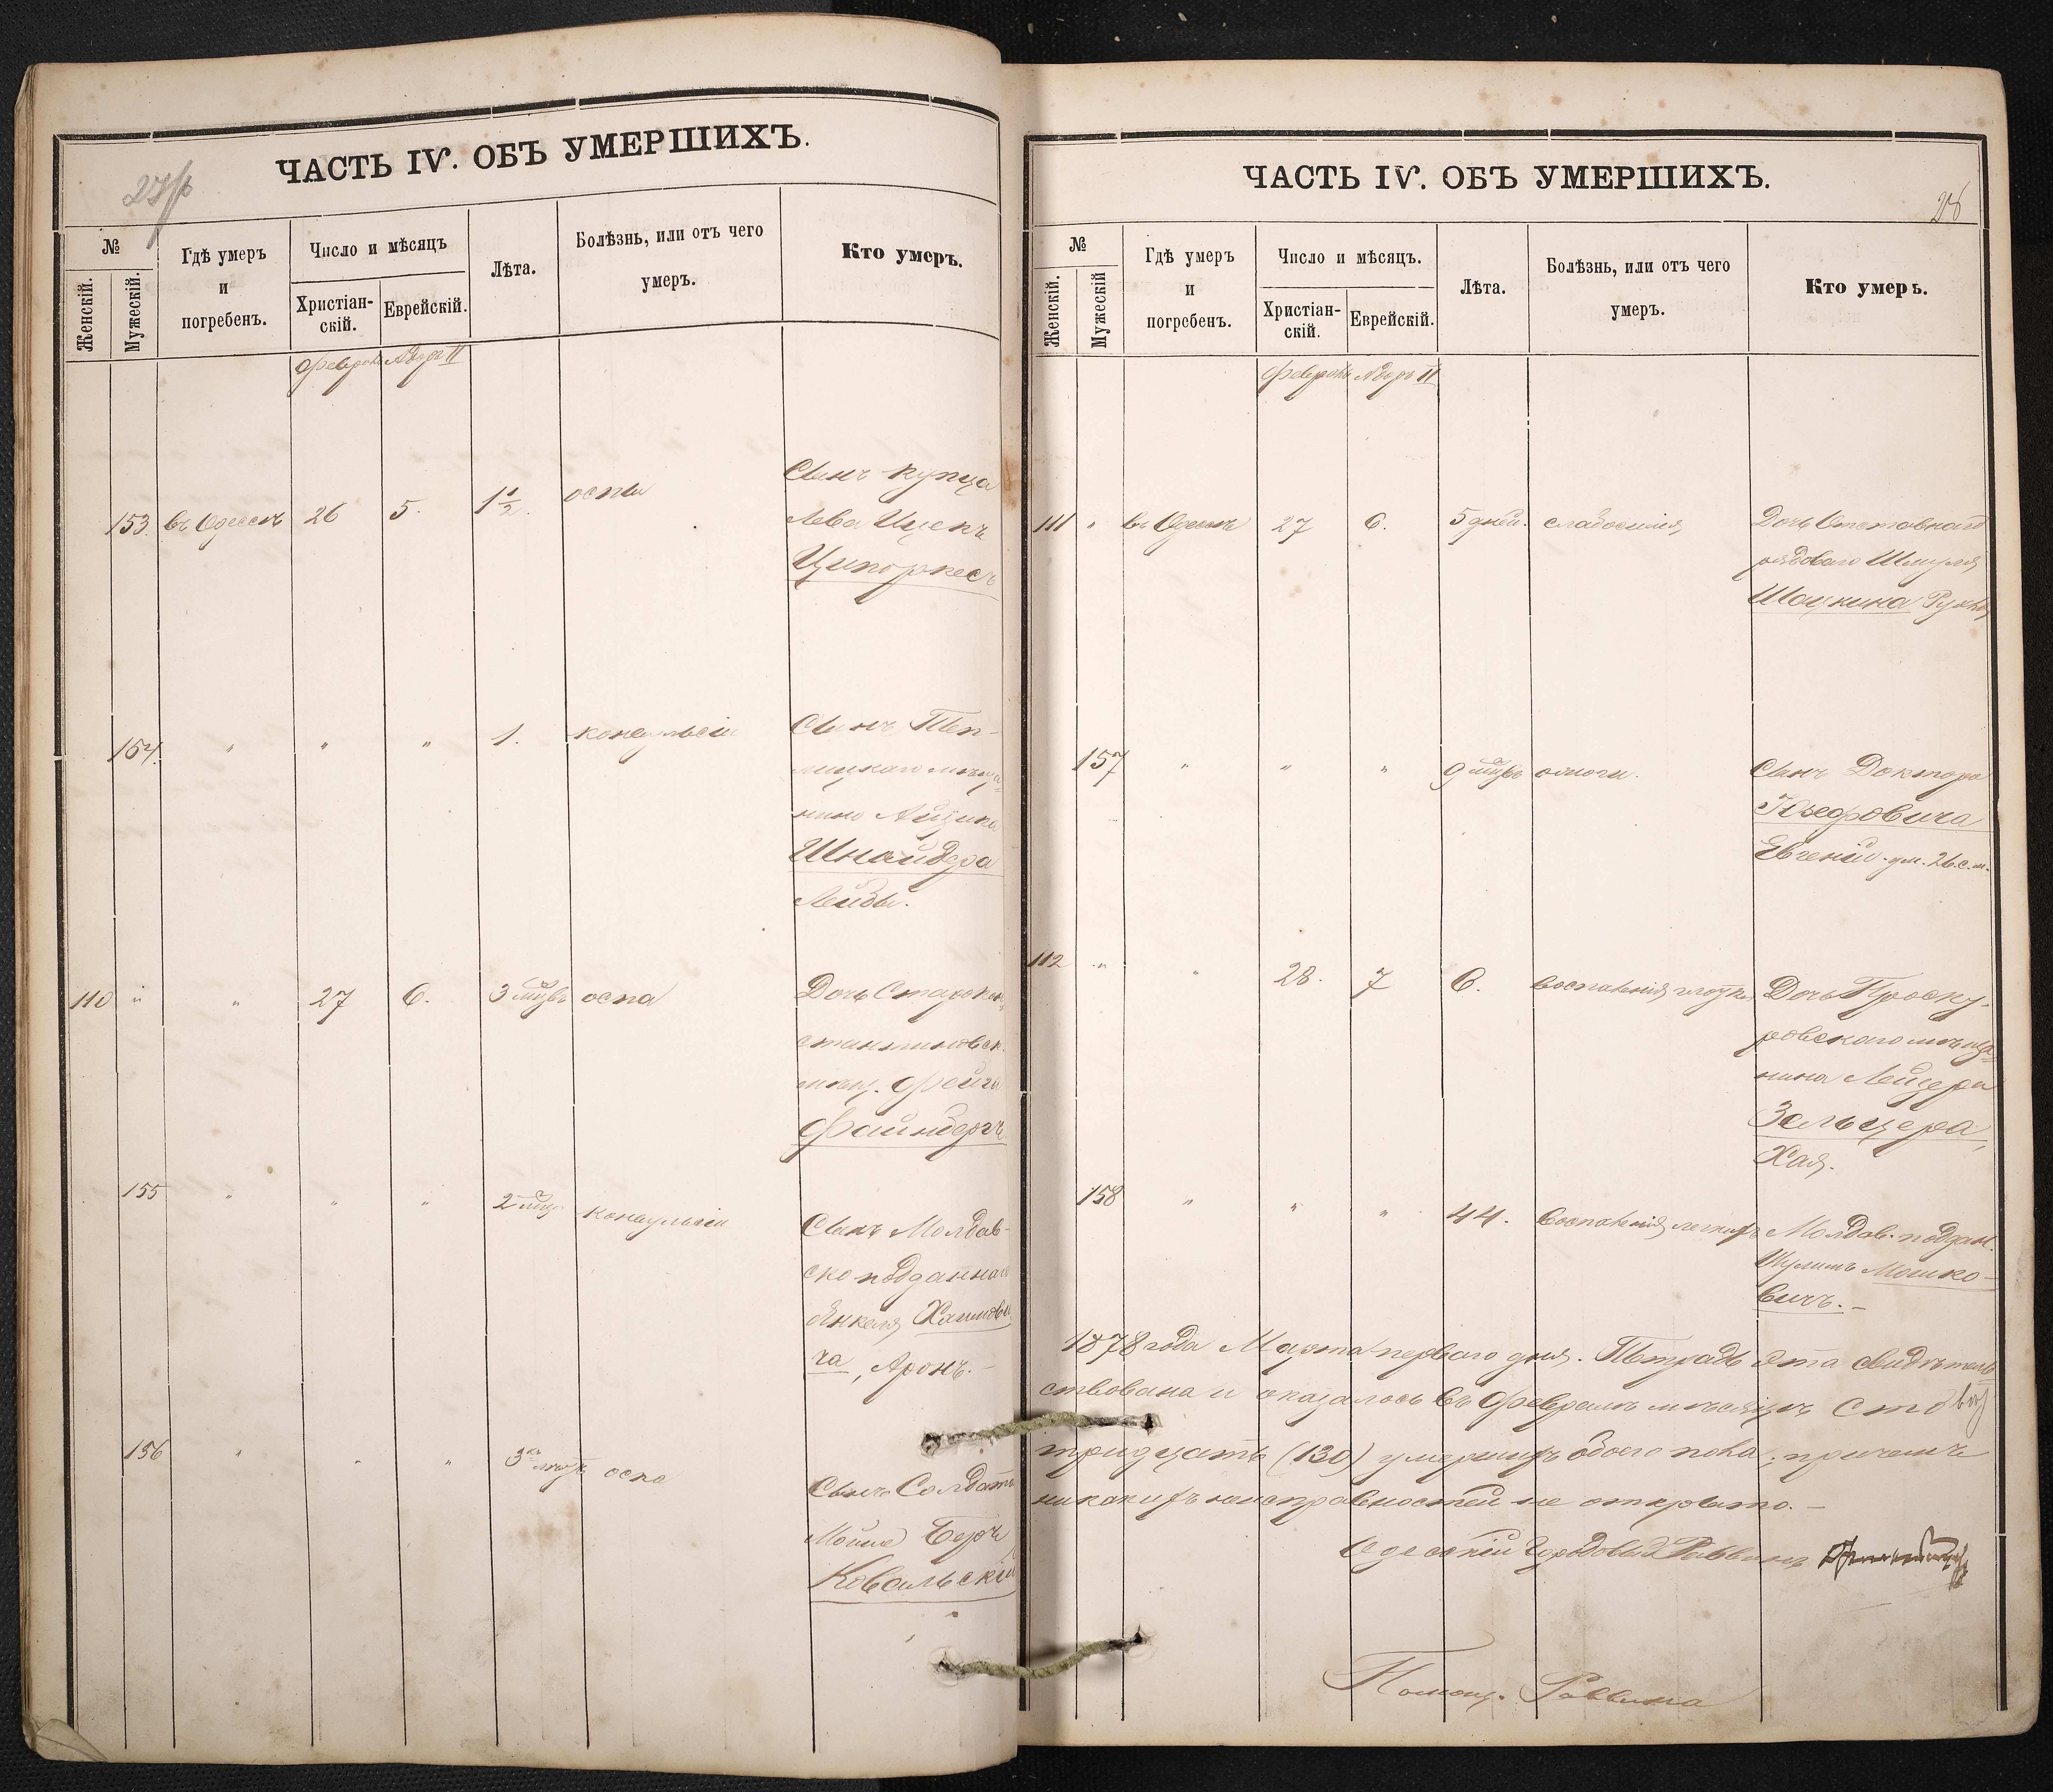 ЧАСТЬ IV. ОБЪ УМЕРШИХЪ.
№
Женскій.
Мужескій.
Гдѣ умеръ
и
погребенъ.
Число и мѣсяцъ
Христіан-
скій.
Еврейскій.
Лѣта.
Болѣзнь, или отъ чего
умеръ.
Кто умеръ.
Адаръ II
153. въ Одессѣ 26 5. 1 1/2 оспы
Сынъ купца
Лева Ицекъ
Ципоркесъ
154. " " " 1. конвульсіи
Сынъ Теп-
лицкаго мѣща-
нина Айзика
Шнайдера
Лейбы.
110 " " 27 6. 3 мѣсц. оспа
Дочь Старокон-
стантиновск.
мѣщ. Фейга
Файнбергъ
155 " " " 2 мѣсц. конвульсіи
Сынъ Молдав-
ско подданнаго
Янкеля Хаимови-
ча, Аронъ.-
156 " " " 3 оспа
Сынъ Солдата
Мойше Беръ
Ковальскій
ЧАСТЬ IV. ОБЪ УМЕРШИХЪ.
№
Женскій.
Мужескій
Гдѣ умеръ
и
погребенъ.
Число и мѣсяцъ.
Христіан-
скій.
Еврейскій.
Лѣта.
Болѣзнь, или отъ чего
умеръ.
Кто умеръ.
Адаръ II
111 " въ Одессѣ 27 6. 5 дней. слабосилія
Дочь Отставнаго
рядоваго Шмуля
Шацкина Рухля
157 " " " 9 мѣсц. ожоги.
Сынъ Доктора
Юзефовича
Евгеній. ум. 26. с. м.
112 " " 28. 7 6. воспаленія глотки
Дочь Проску-
ровскаго мѣща-
нина Лейзера
Зельцера,
Хая.
158 " " " 44. воспаленія легкихъ
Молдав. поддан.
Шулимъ Мошко-
вичъ.-
1878 года Марта перваго дня. Тетрадь эта свидѣтель-
ствована и оказалось въ Февралѣ мѣсяцѣ сто
тридцать (130) умершихъ обоего пола, причемъ
никакихъ неисправностей не открыто.-
Одесскій Городовой Раввинъ
Помощ. Раввина